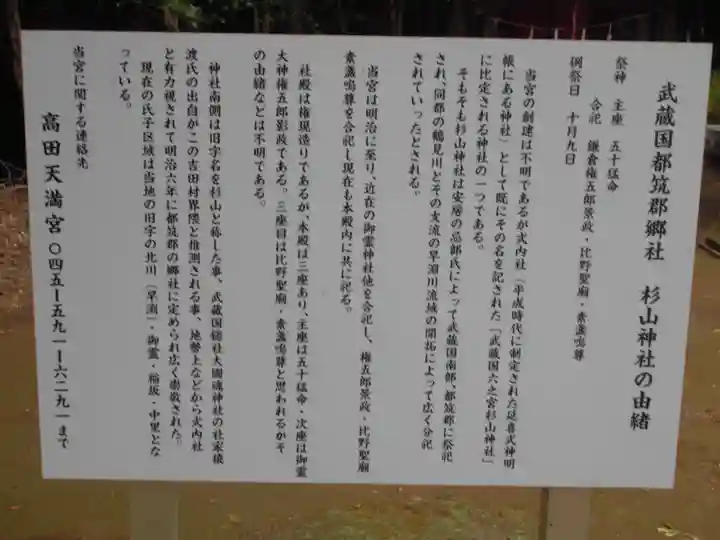 武蔵国都筑郡郷社　杉山神社の由緒
祭神　主座　五十猛命
合祀　鎌倉権五郎景政・比野聖廟・素盞鳴尊
例祭日　十月九日
当宮の創建は不明であるが式内社（平成時代に制定された延喜式神明
帳にある神社）として既にその名を記された「武蔵国六之宮杉山神社」
に比定される神社の一つである。
そもそも杉山神社は安房の忌部氏によって武蔵国南部、都筑郡に祭祀
され、同郡の鶴見川とその支流の早淵川流域の開拓によって広く分祀
されていったとされる。
当宮は明治に至り、近在の御霊神社他を合祀し、権五郎景政・比野聖廟
素盞鳴尊を合祀し現在も本殿内に共に祀る。
社殿は権現造りであるが、本殿は三座あり、主座は五十猛命・次座は御霊
大神権五郎影政である。三座目は比野聖廟・素盞鳴尊と思われるがそ
の由緒などは不明である。
神社南側は旧字名を杉山と称した事、武蔵国総社大國魂神社の社家猿
渡氏の出自がこの吉田村界隈と推測される事、地勢上などから式内社
と有力視されて明治六年に都筑郡の郷社に定められ広く崇敬された。
現在の氏子区域は当地の旧字の北川（早淵）・御霊・稲坂・中里とな
っている。
当宮に関する連絡先
高田天満宮　〇四五ー五九一ー六二九一まで